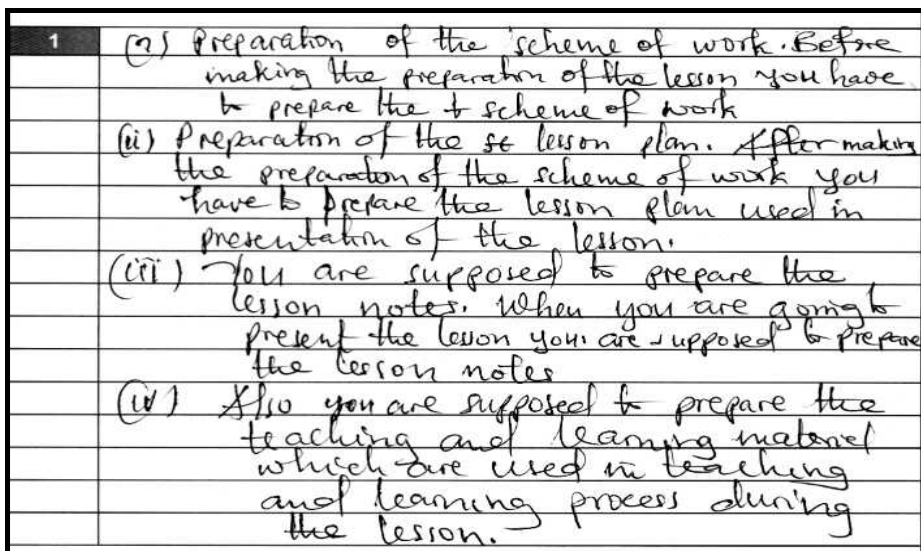 1 (i) Preparation of the scheme of work. Before
making the preparation of the lesson you have
to prepare the scheme of work
(ii) Preparation of the lesson plan. After making
the preparation of the scheme of work you
have to prepare the lesson plan used in
presentation of the lesson.
(iii) You are supposed to prepare the
lesson notes. When you are going to
present the lesson you are supposed to prepare
the lesson notes
(iv) Also you are supposed to prepare the
teaching and learning material
which are used in teaching
and learning process during
the lesson.